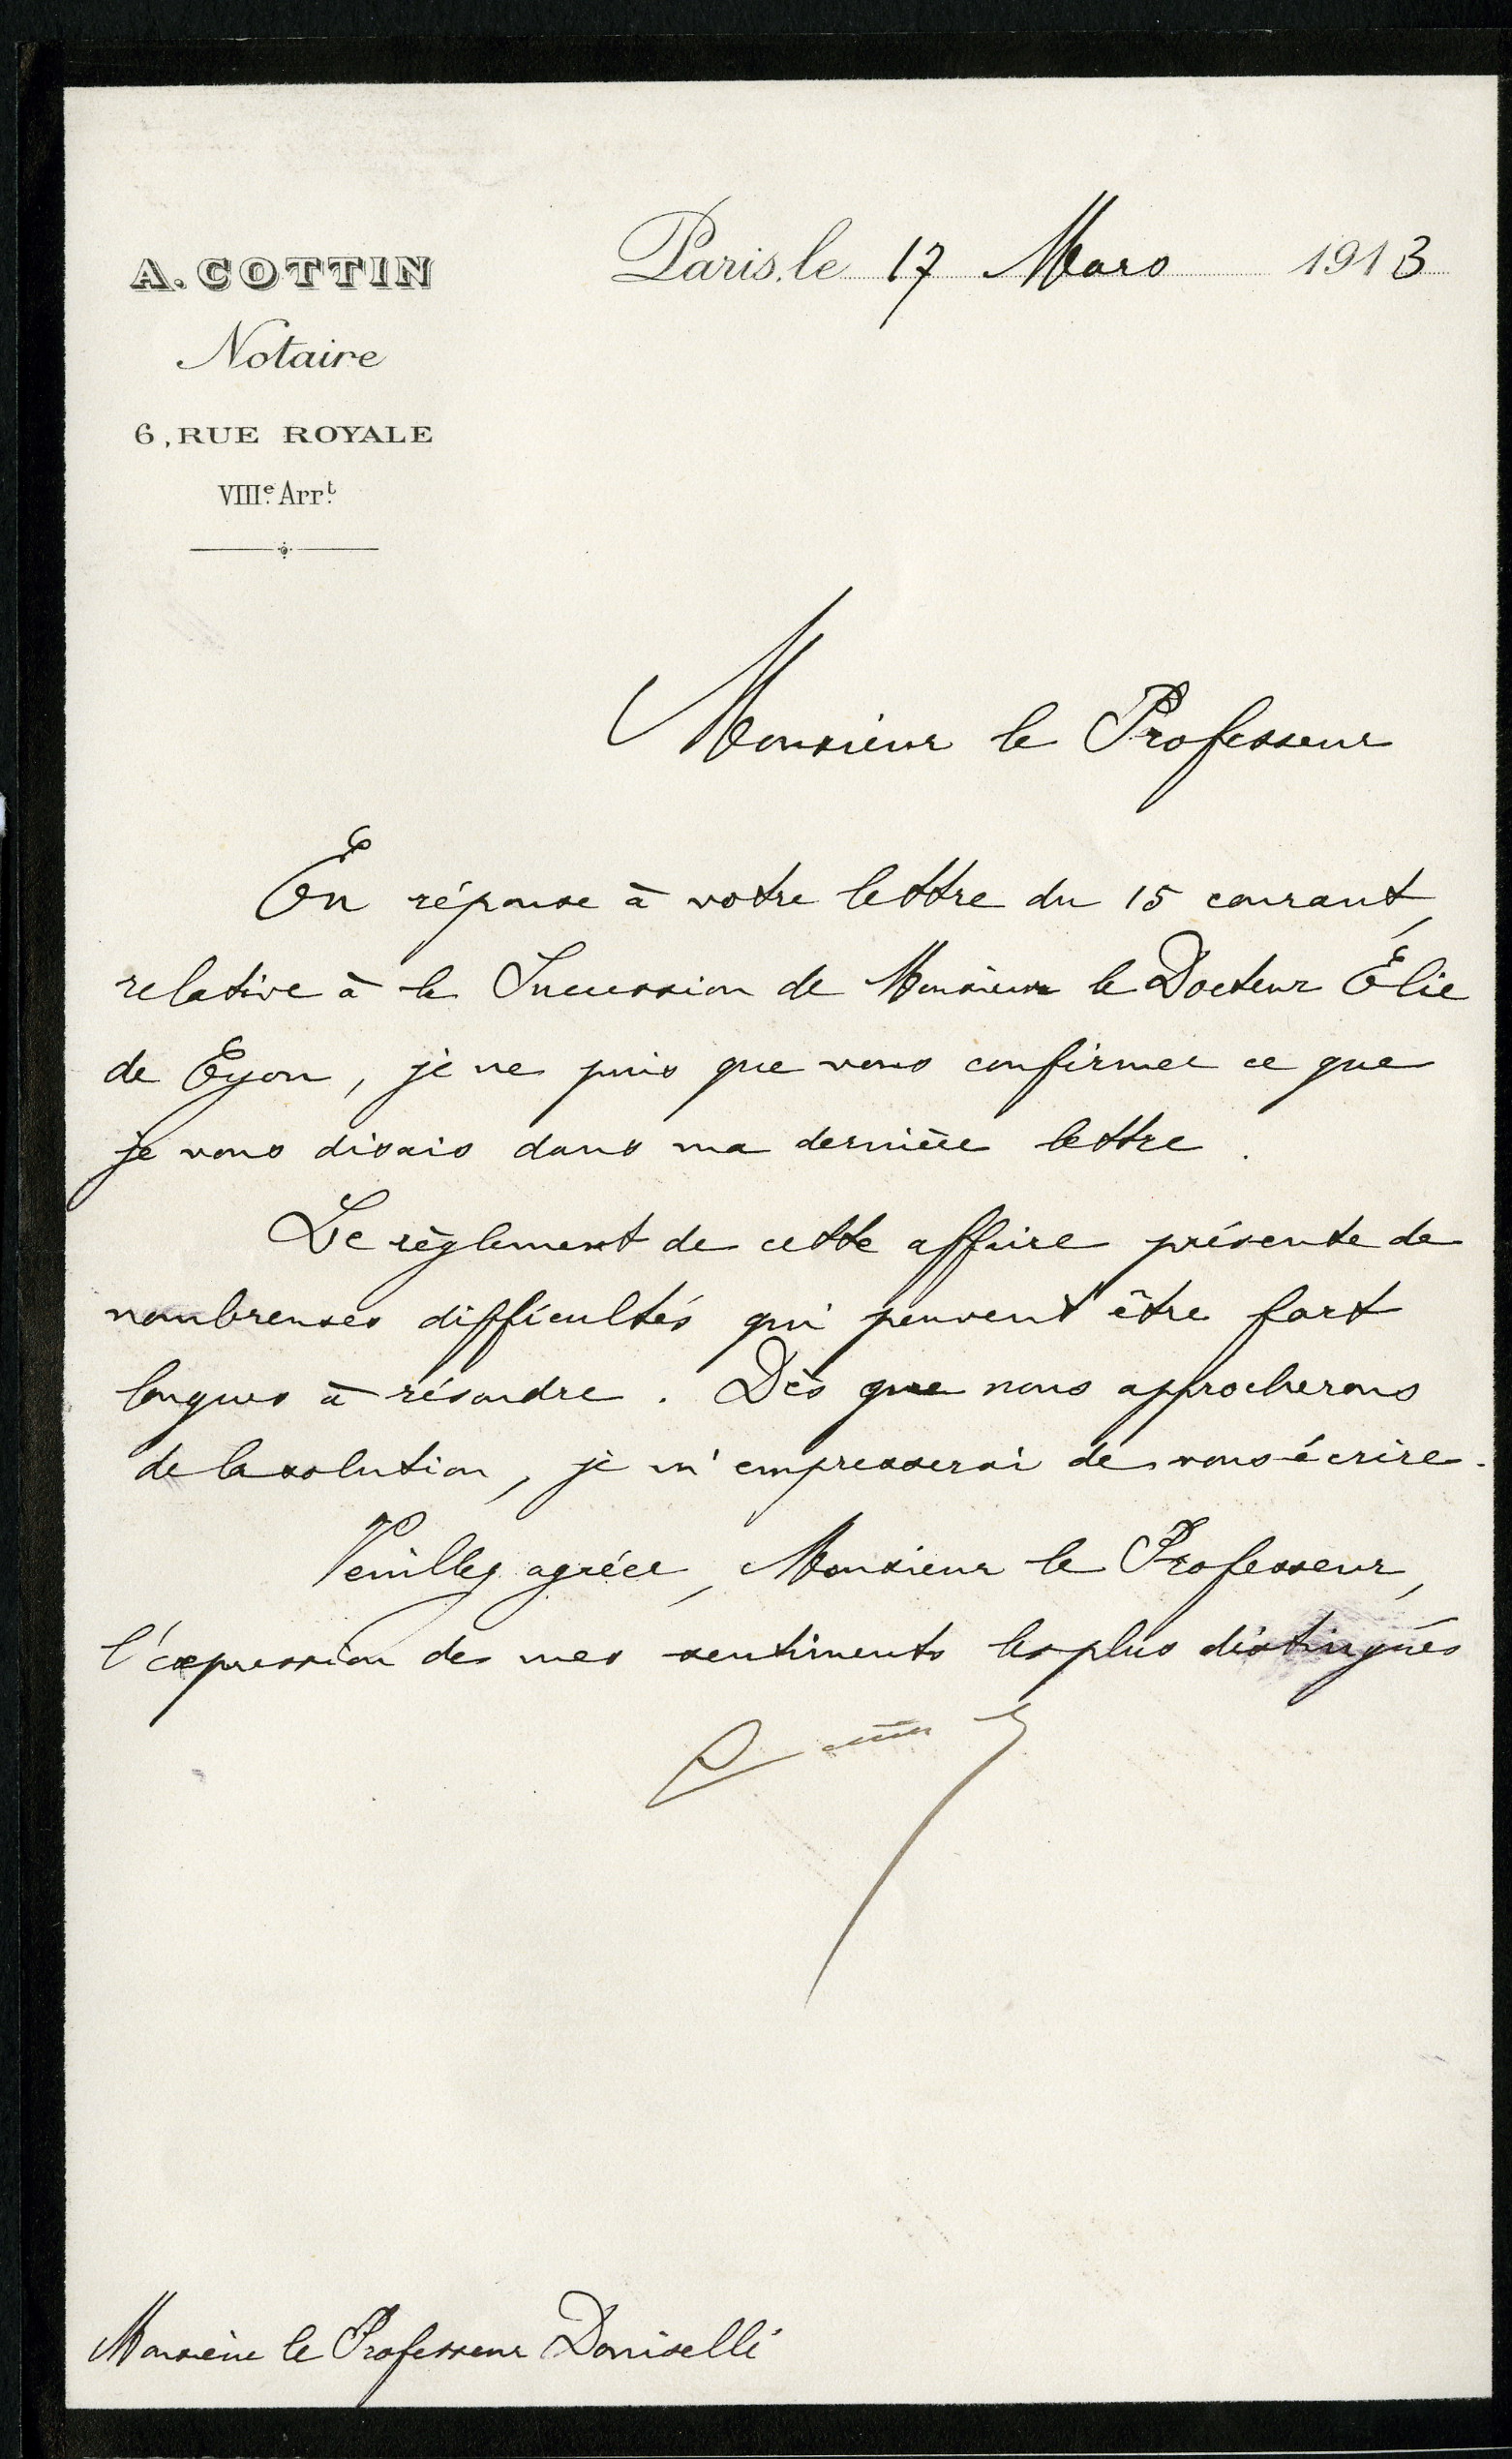 A. COTTIN
Notaire
6, RUE ROYALE
VIIIe. Arrt.
Paris, le 17 Mars 1913
Monsieur le Professeur
En réponse à votre lettre du 15 courant,
relative à la Succession de Monsieur le Docteur Élie
de Cyon, je ne puis que vous confirmer ce que
je vous disais dans ma dernière lettre.
Le règlement de cette affaire présente de
nombreuses difficultés qui peuvent être fort
longues à résoudre. Dès que nous approcherons
de la solution, je m'empresserai de vous écrire.
Veuillez agréer, Monsieur le Professeur,
l'expression de mes sentiments les plus distingués
Monsieur le Professeur Doniselli